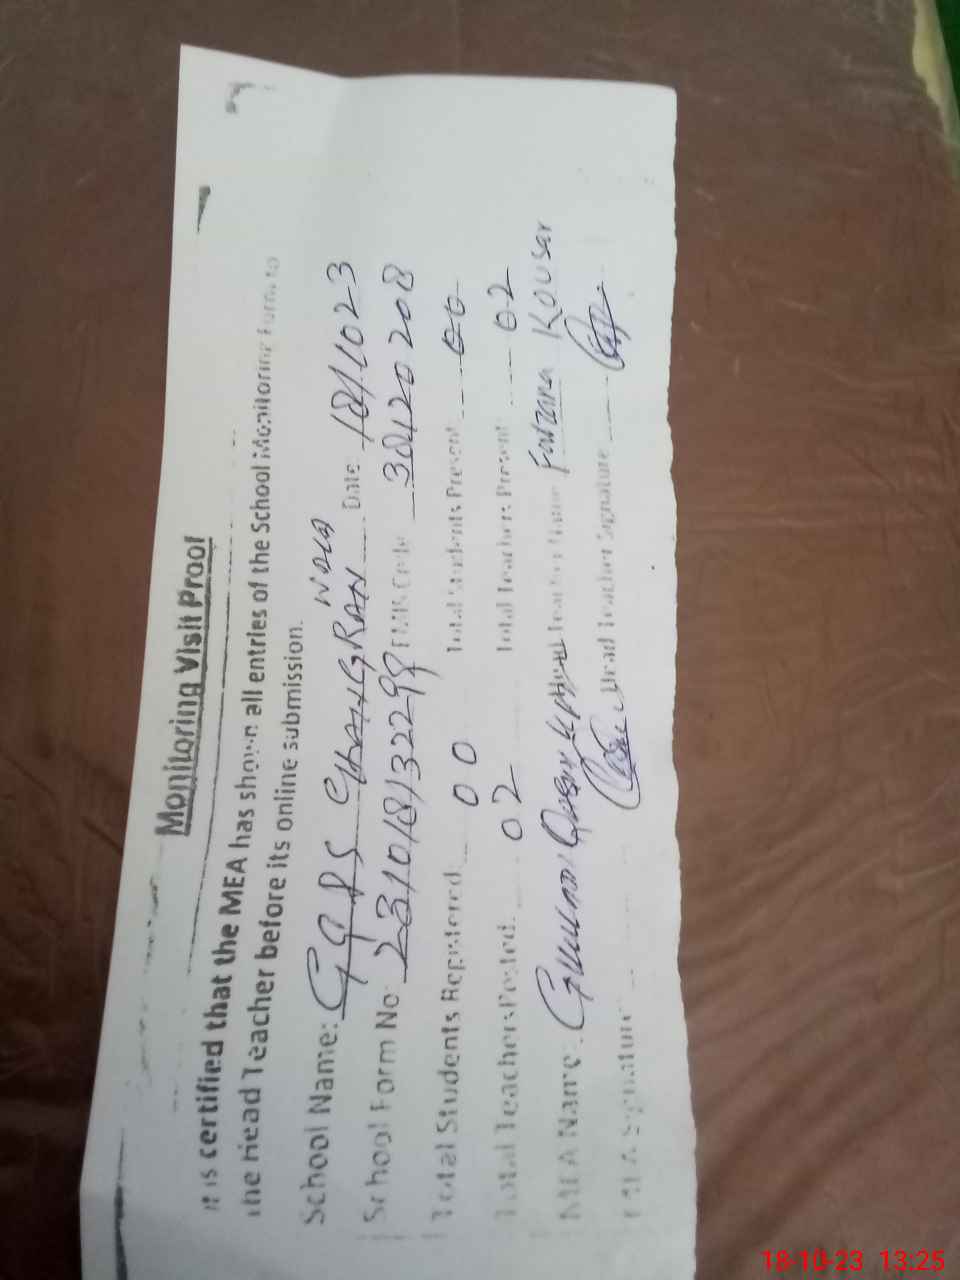 Monitoring Visit Proof
It is certified that the MEA has shown all entries of the School Monitoring Form to
the Head Teacher before its online submission.
School Name: GGPS CHANGRAN WALA Date 18/1023
School Form No: EMIS Code 38420208
Total Students Registered: 00 Total Students Present 00
Total Teachers Posted: 02 Total Teachers Present 02
MEA Name: Head Teacher Name Farzana Kousar
MEA Signature Head Teacher Signature
18-10-23 13:25